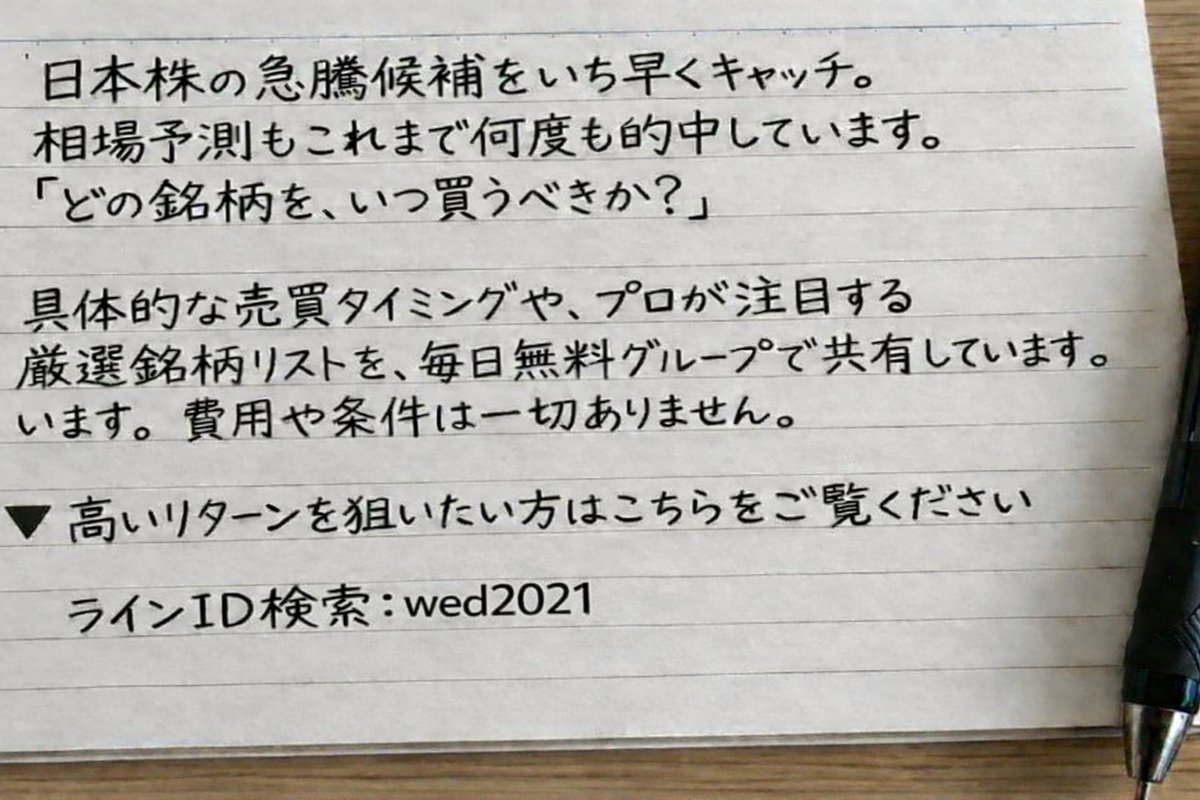 日本株の急騰候補をいち早くキャッチ。
相場予測もこれまで何度も的中しています。
「どの銘柄を、いつ買うべきか？」
具体的な売買タイミングや、プロが注目する
厳選銘柄リストを、毎日無料グループで共有しています。
います。費用や条件は一切ありません。
▼ 高いリターンを狙いたい方はこちらをご覧ください
ラインID検索：wed2021